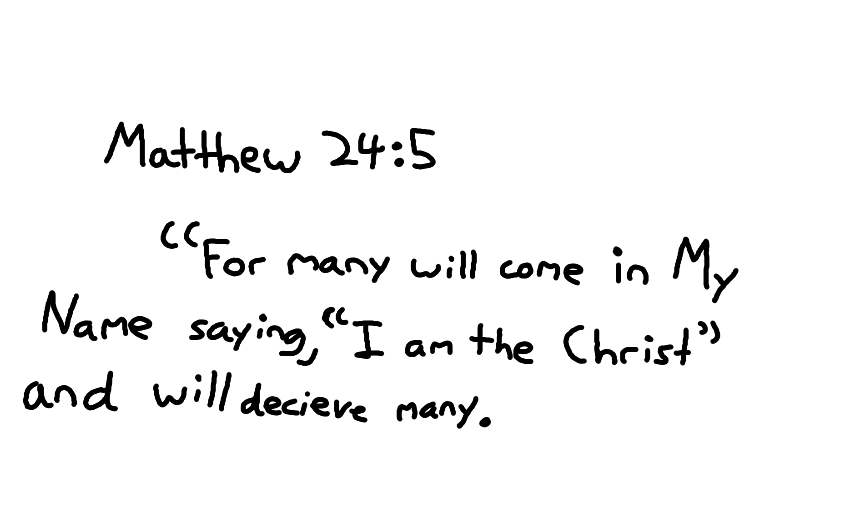 Matthew 24:5
“For many will come in My
Name saying, “I am the Christ”
and will decieve many.